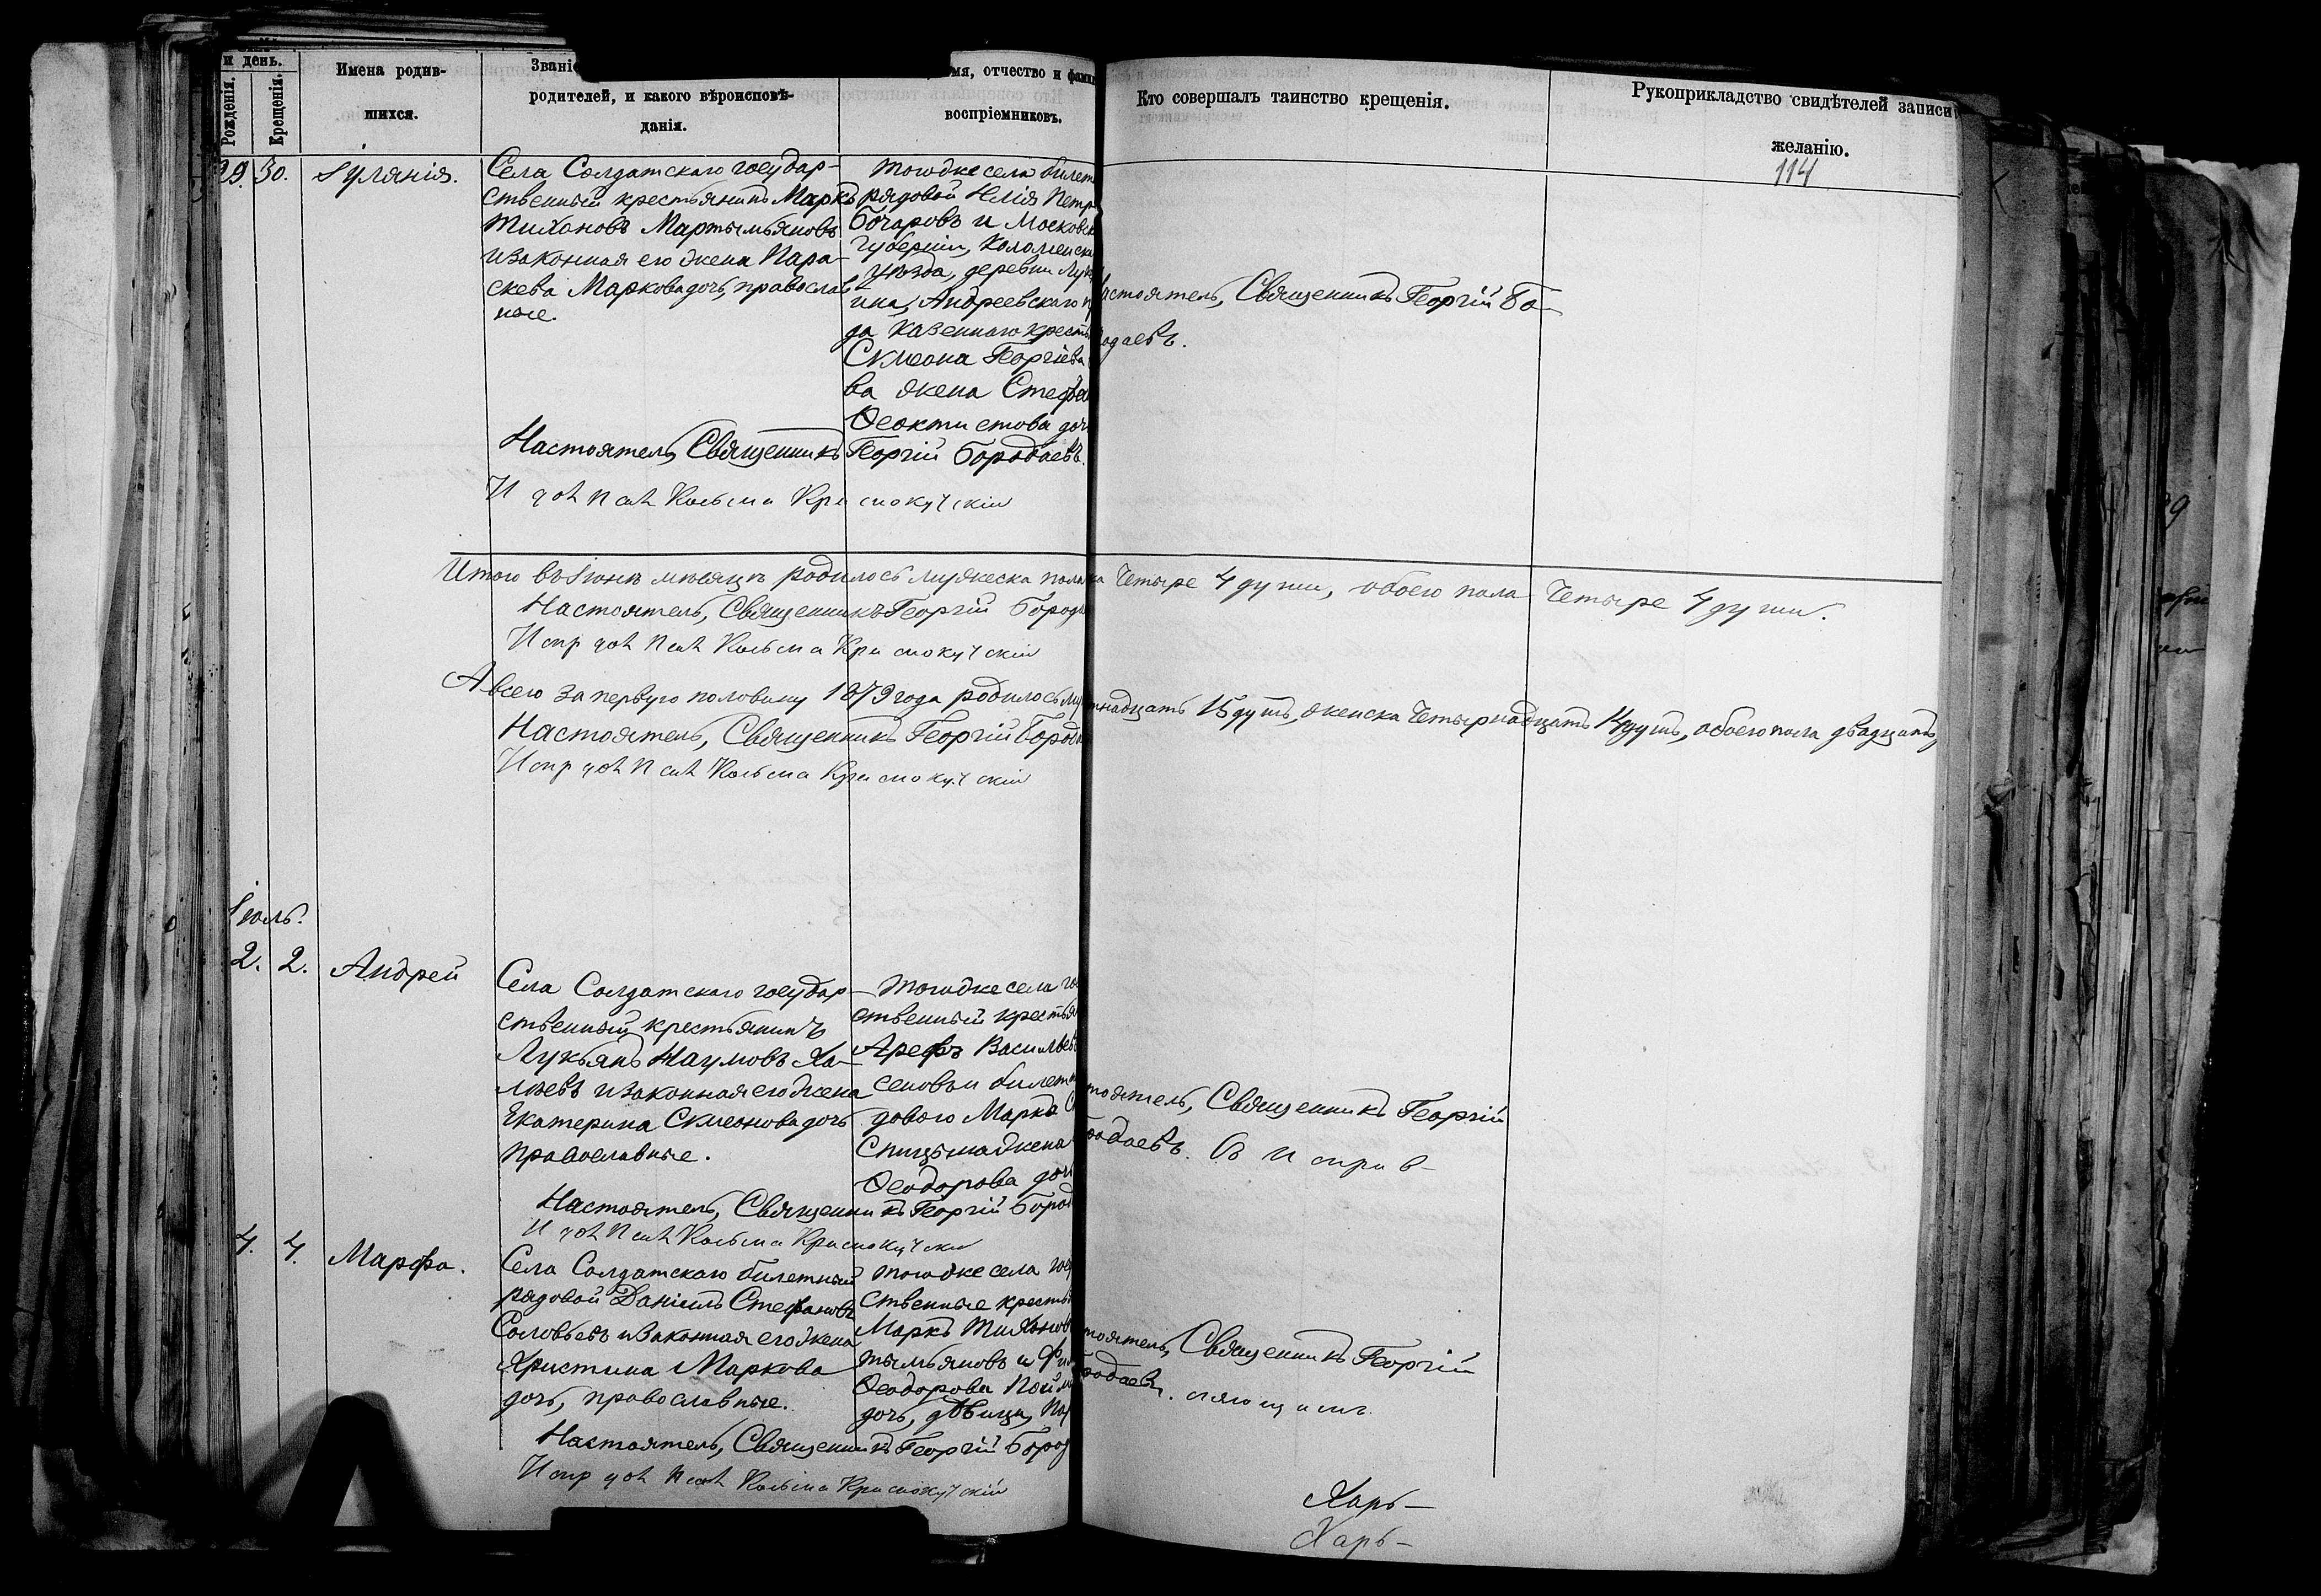 и день.
Рожденія.
Крещенія.
Имена родив-
шихся.
Званіе
родителей, и какого вѣроисповѣ-
данія.
мя, отчество и фами
воспріемниковъ.
Кто совершалъ таинство крещенія.
Рукоприкладство свидѣтелей записи
желанію.
114
29. 30. Іуліанія.
Села Солдатскаго государ-
ственный крестьянинъ Маркъ
Тихоновъ Мартымьяновъ
и законная его жена Пара-
скева Маркова дочь, православ
ные.
тогоже села билет
рядовой Илія Петр
Бочаровъ и Московск
Губерніи, Коломенска
уѣзда, деревни Лук
ина, Андреевскаго п
да казеннаго кресть
Симеона Георгіева
ва жена Стефа
Ѳеоктистова доч
астоятель, Священникъ Георгій Бо-
одаевъ.
Настоятель, Священникъ Георгій Бородаевъ.
И д о һ П с а һ Косьма Краснокутскій
Итого въ Іюнѣ мѣсяцѣ родилось мужеска пола
ка Четыре 4 души, обоего пола Четыре 4 души.
Настоятель, Священникъ Георгій Борода
Испр доһ Псаһ Косьма Краснокутскій
А всего за первую половину 1879 года родилось му
тнадцать 15 душъ, женска Четырнадцать 14 душъ, обоего пола двадцать
Настоятель, Священникъ Георгій Бород
Испр доһ Псаһ Косьма Краснокутскій
Іюль.
2. 2. Андрей
Села Солдатскаго государ-
ственный крестьянинъ
Лукьянъ Наумовъ Ха-
лѣевъ и законная его жена
Екатерина Симеонова дочь
православные.
тогоже села го
ственный крестья
Арефъ Васильевъ
сеновъ и билетн
доваго Марка С
Спицына жена
Ѳеодорова доч
тоятель, Священникъ Георгій
родаевъ. Съ исправ-
Настоятель, Священникъ Георгій Бород
И доһ Псаһ Косьма Краснокутскій
4. 4. Марѳа.
Села Солдатскаго билетный
рядовой Даніилъ Стефановъ
Соловьевъ и законная его жена
Христина Маркова
дочь, православные.
тогоже села гос
ственные крестья
Маркъ Тихонов
тымьяновъ и Фи
Ѳеодорова Пойм
дочь, дѣвица, Пар
тоятель, Священникъ Георгій
родаевъ. ляющимъ.
Настоятель, Священникъ Георгій Бород
Испр доһ Псаһ Косьма Краснокутскій
Харь-
Харь-